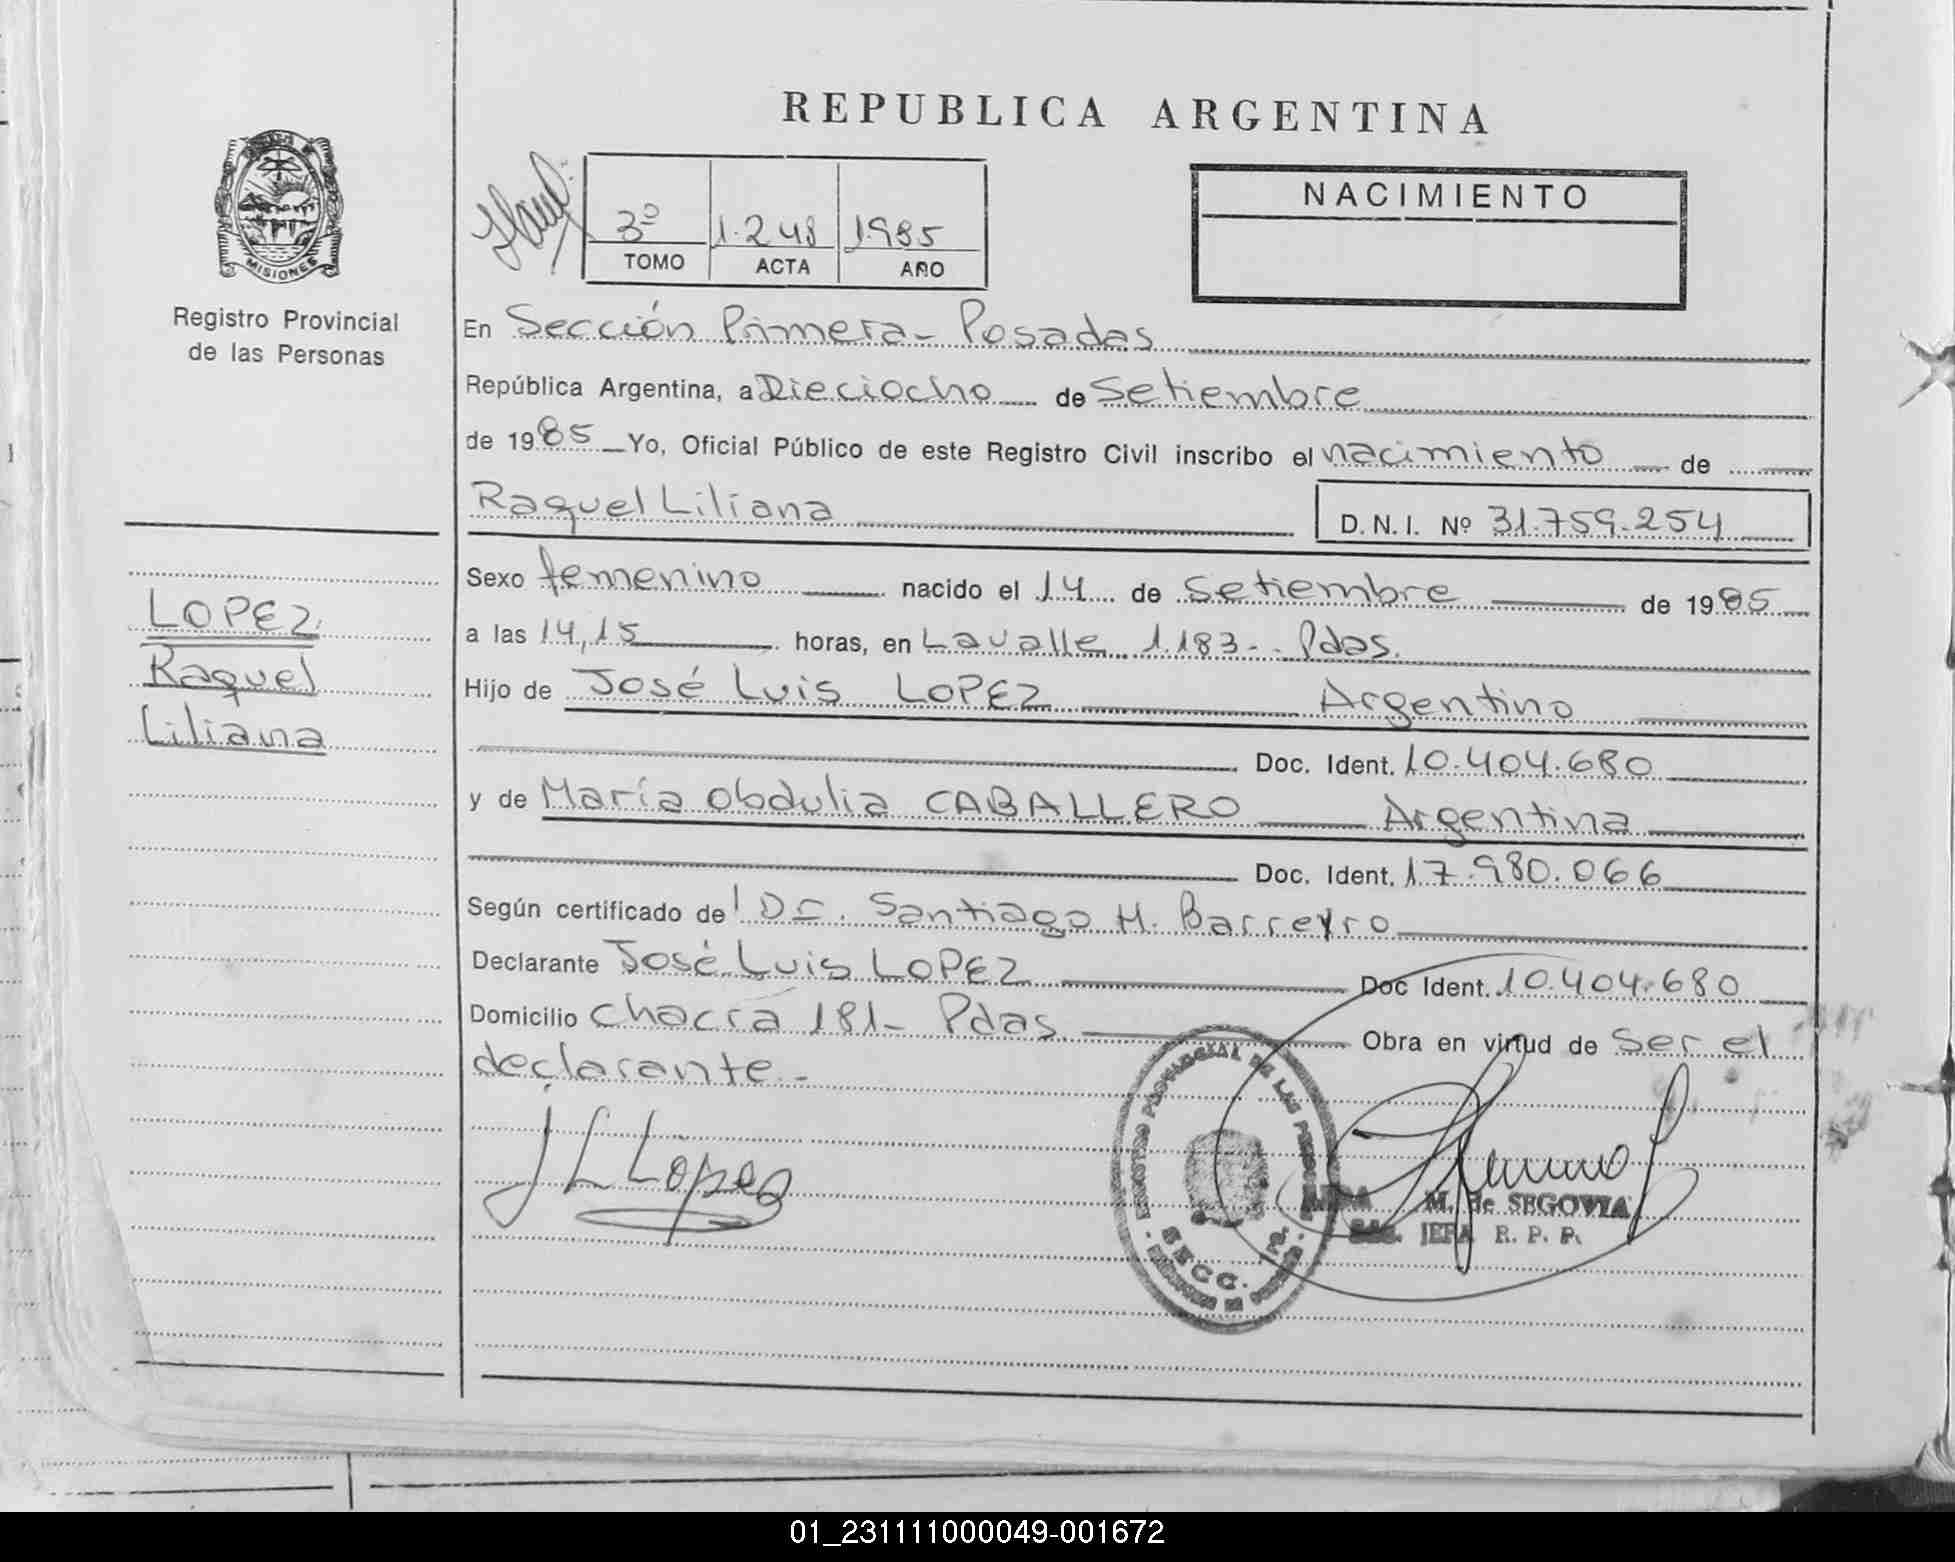 REPUBLICA ARGENTINA
MISIONES
Registro Provincial
de las Personas
3º 1.248 1985
TOMO ACTA AÑO
NACIMIENTO
En Sección Primera - Posadas
República Argentina, a Dieciocho de Setiembre
de 1985 Yo, Oficial Público de este Registro Civil inscribo el nacimiento de
Raquel Liliana D.N.I. Nº 31.759.254
LOPEZ
Raquel
Liliana
Sexo femenino nacido el 14 de Setiembre de 1985
a las 14,15 horas, en Lavalle 1.183 - Pdas.
Hijo de José Luis LOPEZ Argentino
Doc. Ident. 10.404.680
y de María Obdulia CABALLERO Argentina
Doc. Ident. 17.980.066
Según certificado de Dr. Santiago H. Barreyro
Declarante José Luis LOPEZ Doc Ident. 10.404.680
Domicilio Chacra 181 - Pdas. Obra en virtud de Ser el
declarante -
J L Lopez
REGISTRO PROVINCIAL DE LAS PERSONAS
SECC. 1a.
M. de SEGOVIA
JEFA R. P. P.
01_231111000049-001672